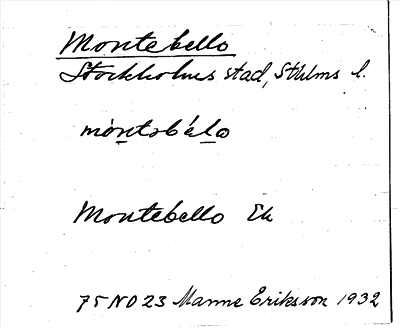 Montebello
Stockholms stad, Sthlms l.
mòntəbélo
Montebello Ek
75 NO 23 Manne Eriksson 1932